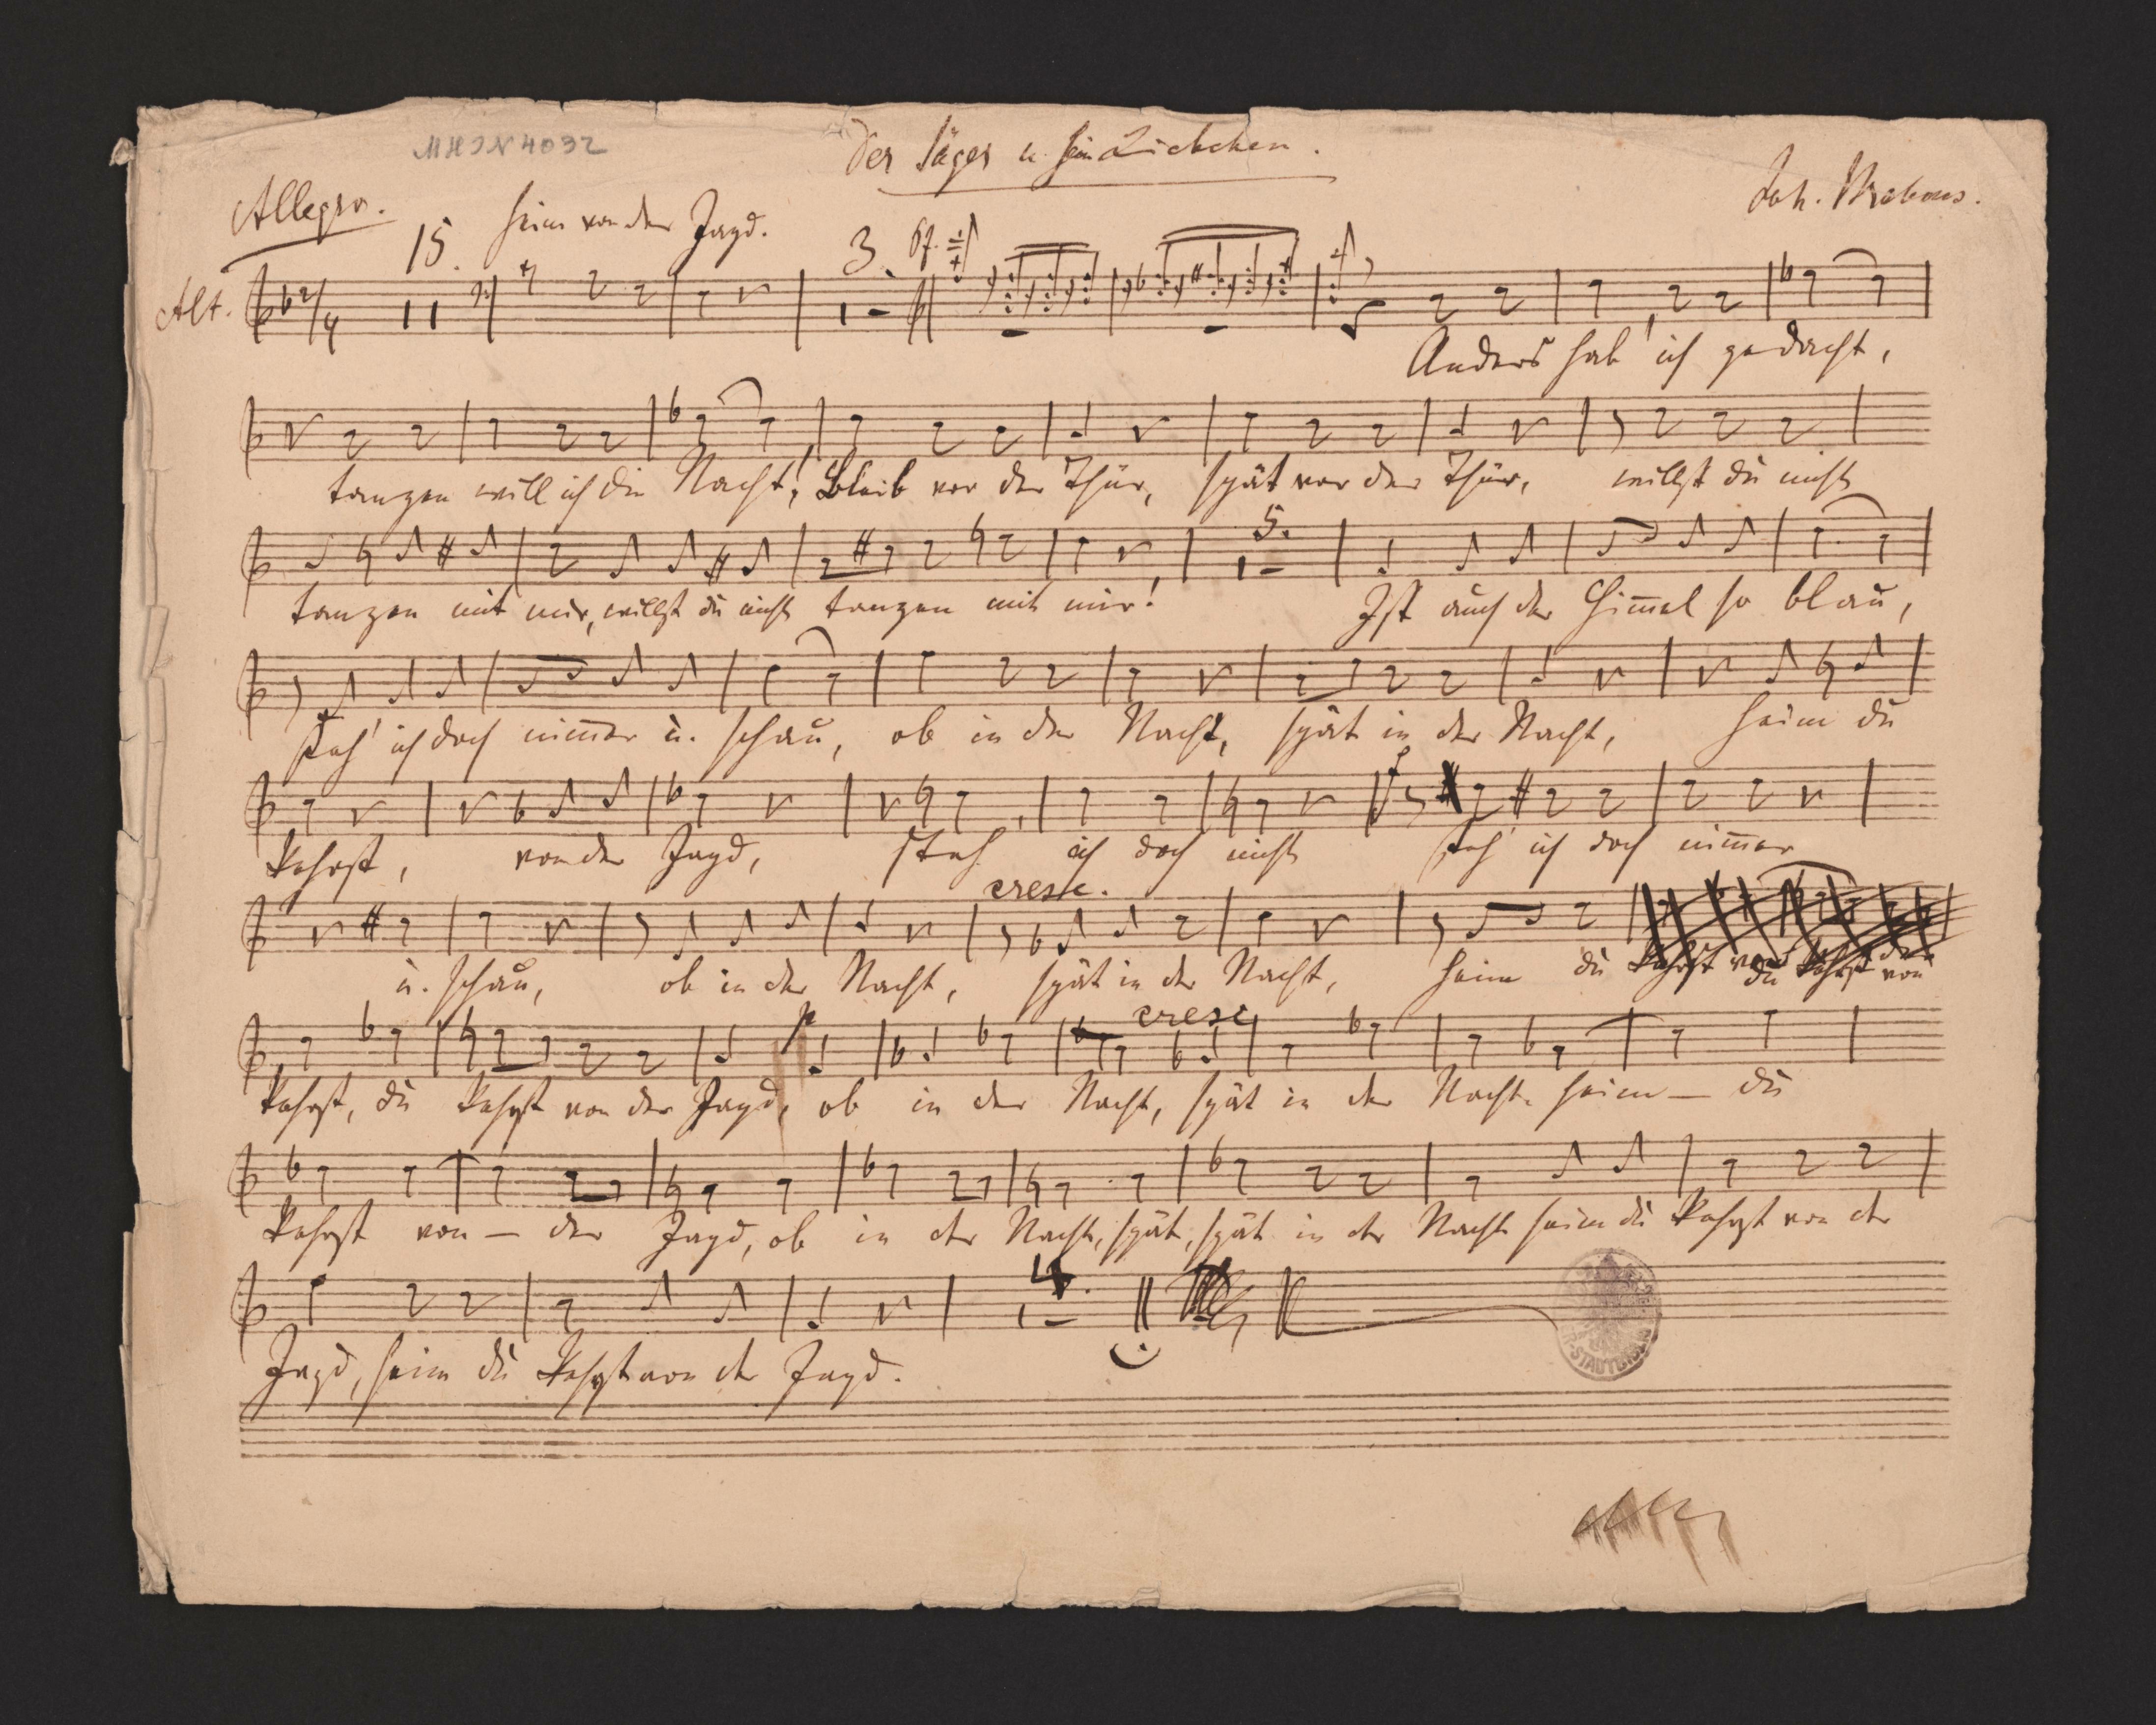 MHIN 4032
Der Jäger u. sein Liebchen.
Joh. Brahms.
Allegro.
15. heim von der Jagd. 3. Pf.
Alt.
Anders hab' ich gedacht,
tanzen will ich die Nacht! Bleib vor der Thür, spät vor der Thür, willst du nicht
5.
tanzen mit mir, willst du nicht tanzen mit mir! Ist auch der Him̄el so blau,
steh' ich doch nim̄er u. schau, ob in der Nacht, spät in der Nacht, heim du
f
kehrst, von der Jagd, steh' ich doch nicht steh' ich doch nim̄er
cresc.
u. schau, ob in der Nacht, spät in der Nacht, heim du kehrst von du kehrst von
p cresc
kehrst, du kehrst von der Jagd, ob in der Nacht, spät in der Nacht heim — du
kehrst von — der Jagd, ob in der Nacht, spät, spät in der Nacht heim du kehrst von der
4.
Jagd, heim du kehrst von der Jagd.